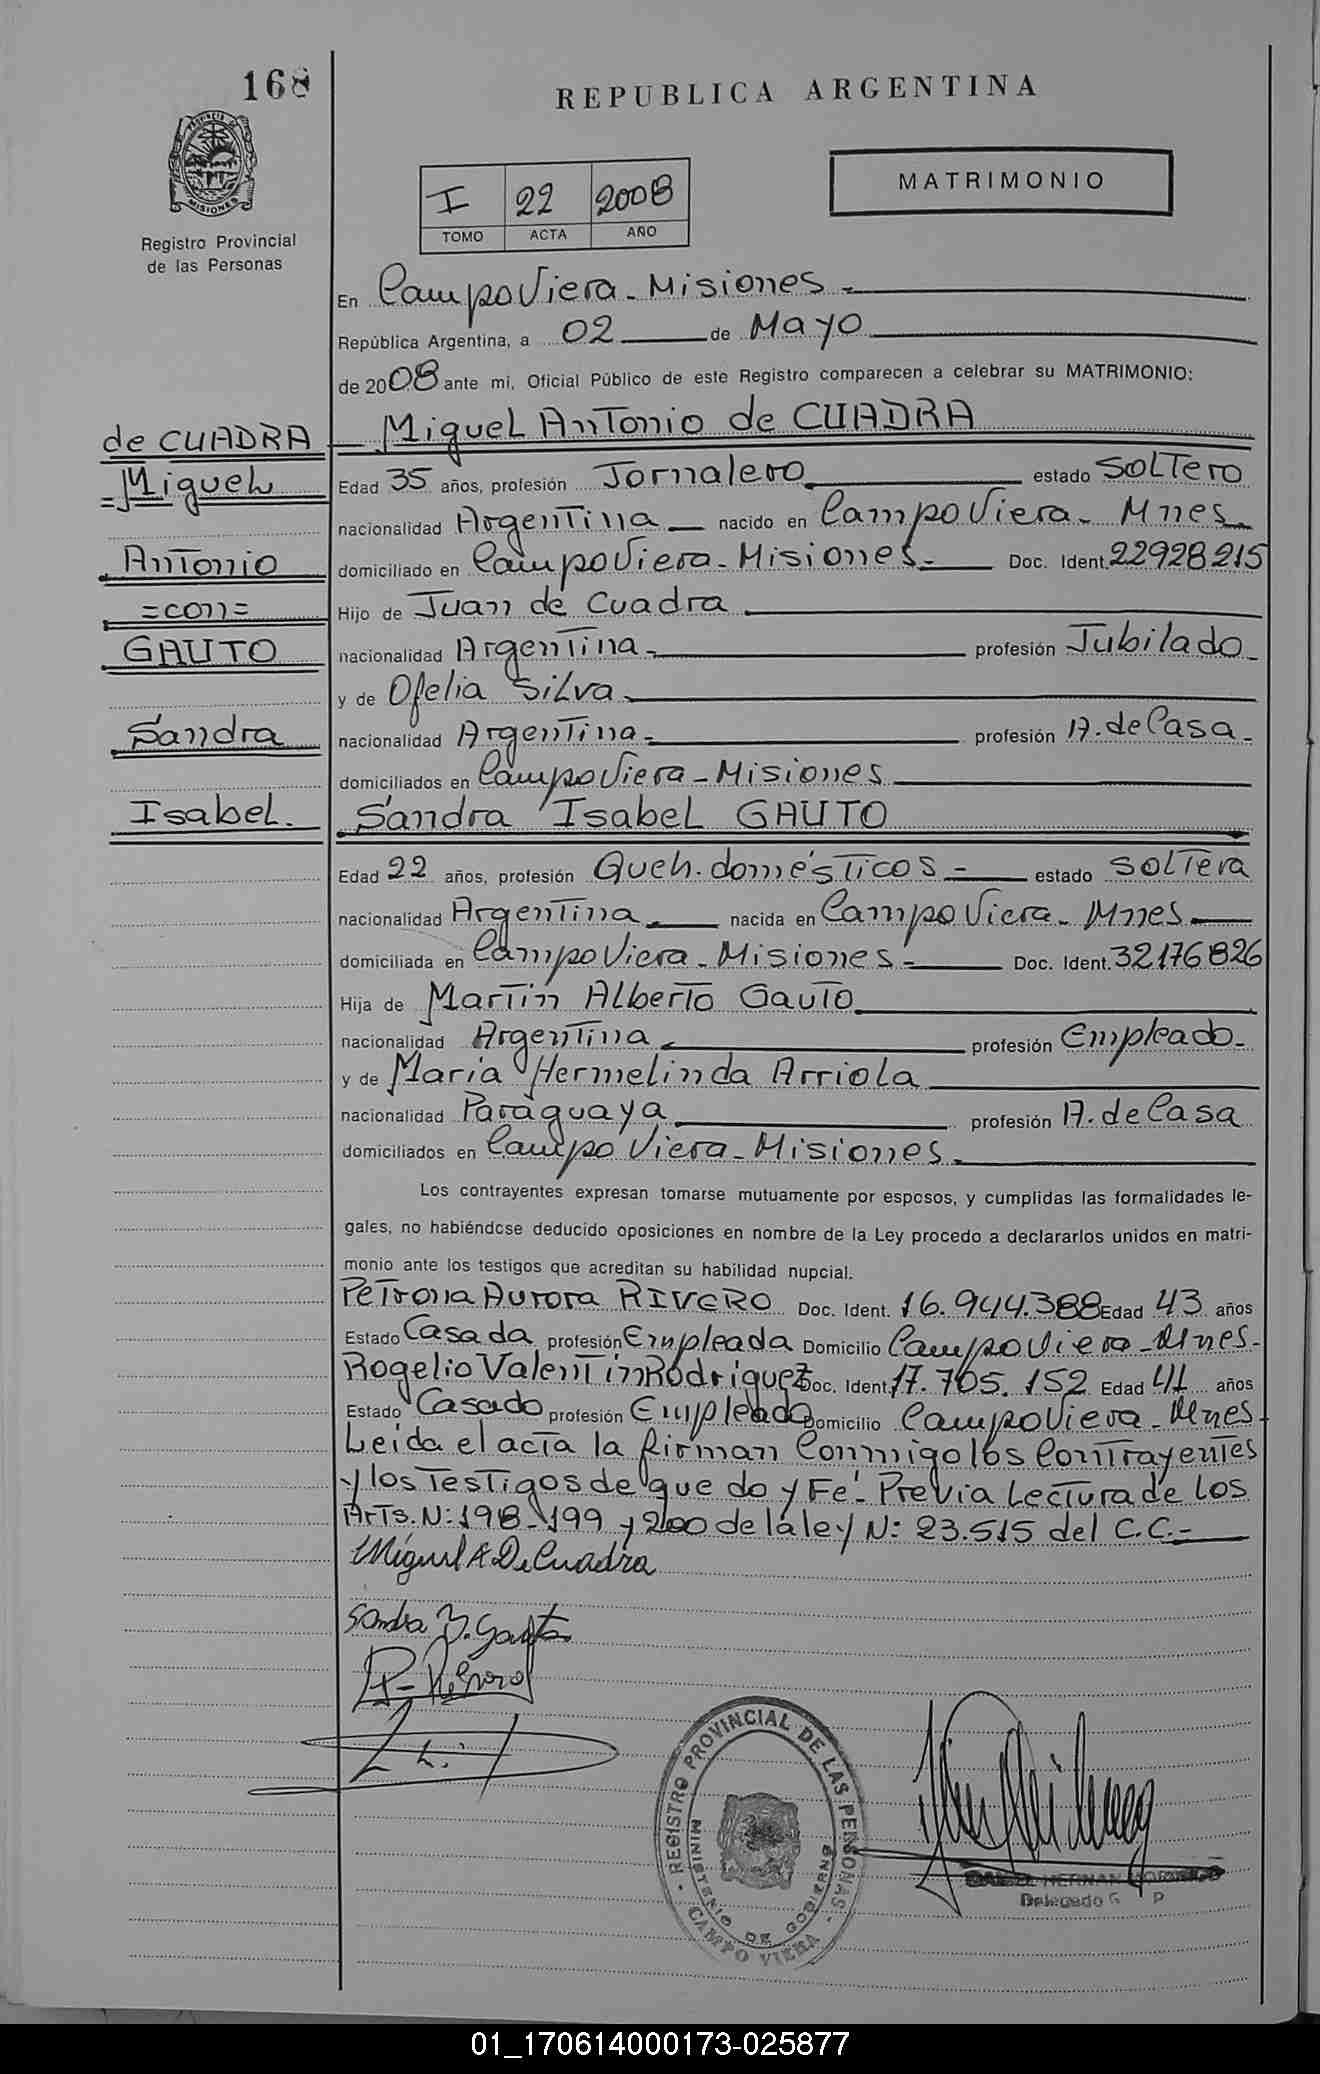 168
REPUBLICA ARGENTINA
PROVINCIA DE
MISIONES
MATRIMONIO
I 22 2008
TOMO ACTA AÑO
Registro Provincial
de las Personas
En Campo Viera - Misiones -
República Argentina, a 02 de Mayo
de 2008 ante mi, Oficial Público de este Registro comparecen a celebrar su MATRIMONIO:
de CUADRA - Miguel Antonio de CUADRA
=Miguel Edad 35 años, profesión Jornalero estado Soltero
nacionalidad Argentina nacido en Campo Viera - Mnes
Antonio domiciliado en Campo Viera - Misiones - Doc. Ident. 22928215
=con= Hijo de Juan de Cuadra
GAUTO nacionalidad Argentina - profesión Jubilado -
y de Ofelia Silva
Sandra nacionalidad Argentina - profesión A. de Casa -
domiciliados en Campo Viera - Misiones
Isabel. Sandra Isabel GAUTO
Edad 22 años, profesión Queh. domésticos - estado Soltera
nacionalidad Argentina nacida en Campo Viera - Mnes
domiciliada en Campo Viera - Misiones - Doc. Ident. 32176826
Hija de Martin Alberto Gauto
nacionalidad Argentina profesión Empleado -
y de Maria Hermelinda Arriola
nacionalidad Paraguaya profesión A. de Casa
domiciliados en Campo Viera - Misiones
Los contrayentes expresan tomarse mutuamente por esposos, y cumplidas las formalidades le-
gales, no habiéndose deducido oposiciones en nombre de la Ley procedo a declararlos unidos en matri-
monio ante los testigos que acreditan su habilidad nupcial.
Petrona Aurora RIVERO Doc. Ident. 16.944.388 Edad 43 años
Estado Casada profesión Empleada Domicilio Campo Viera - Mnes -
Rogelio Valentin Rodriguez Doc. Ident. 17.705.152 Edad 41 años
Estado Casado profesión Empleado Domicilio Campo Viera - Mnes
Leida el acta la firman Conmigo los Contrayentes
y los Testigos de que do y Fé. Previa Lectura de los
Arts. N: 198-199 y 200 de la ley N: 23.515 del C.C.-
Miguel A De Cuadra
Sandra I. Gauto
P- Rivero
REGISTRO PROVINCIAL DE LAS PERSONAS
MINISTERIO DE GOBIERNO
CAMPO VIERA
HERNAN
Delegado
01_170614000173-025877